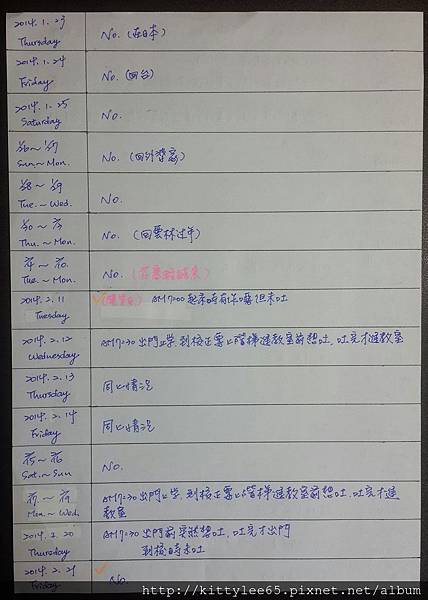 2014. 1. 23
Thursday
No. (在日本)
2014. 1. 24
Friday
No. (回台)
2014. 1. 25
Saturday
No.
1/26~1/27
Sun.~Mon.
No. (回外婆家)
1/28~1/29
Tue.~Wed.
No.
Thu.~Mon.
No. (回雲林过年)
Tue.~Mon.
No.
2014. 2. 11
Tuesday
AM7:00 起床時有作嘔但未吐
2014. 2. 12
Wednesday
AM7:30 出門上學, 到校正要上階梯進教室前想吐, 吐完才進教室
2014. 2. 13
Thursday
同上情況
2014. 2. 14
Friday
同上情況
Sat.~Sun
No.
Mon.~Wed.
AM7:30 出門上学, 到校正要上階梯進教室前想吐, 吐完才進
教室
2014. 2. 20
Thursday
AM7:30 出門前突然想吐, 吐完才出門
到校時未吐
2014. 2. 21
Friday
No.
http://kittylee65.pixnet.net/album